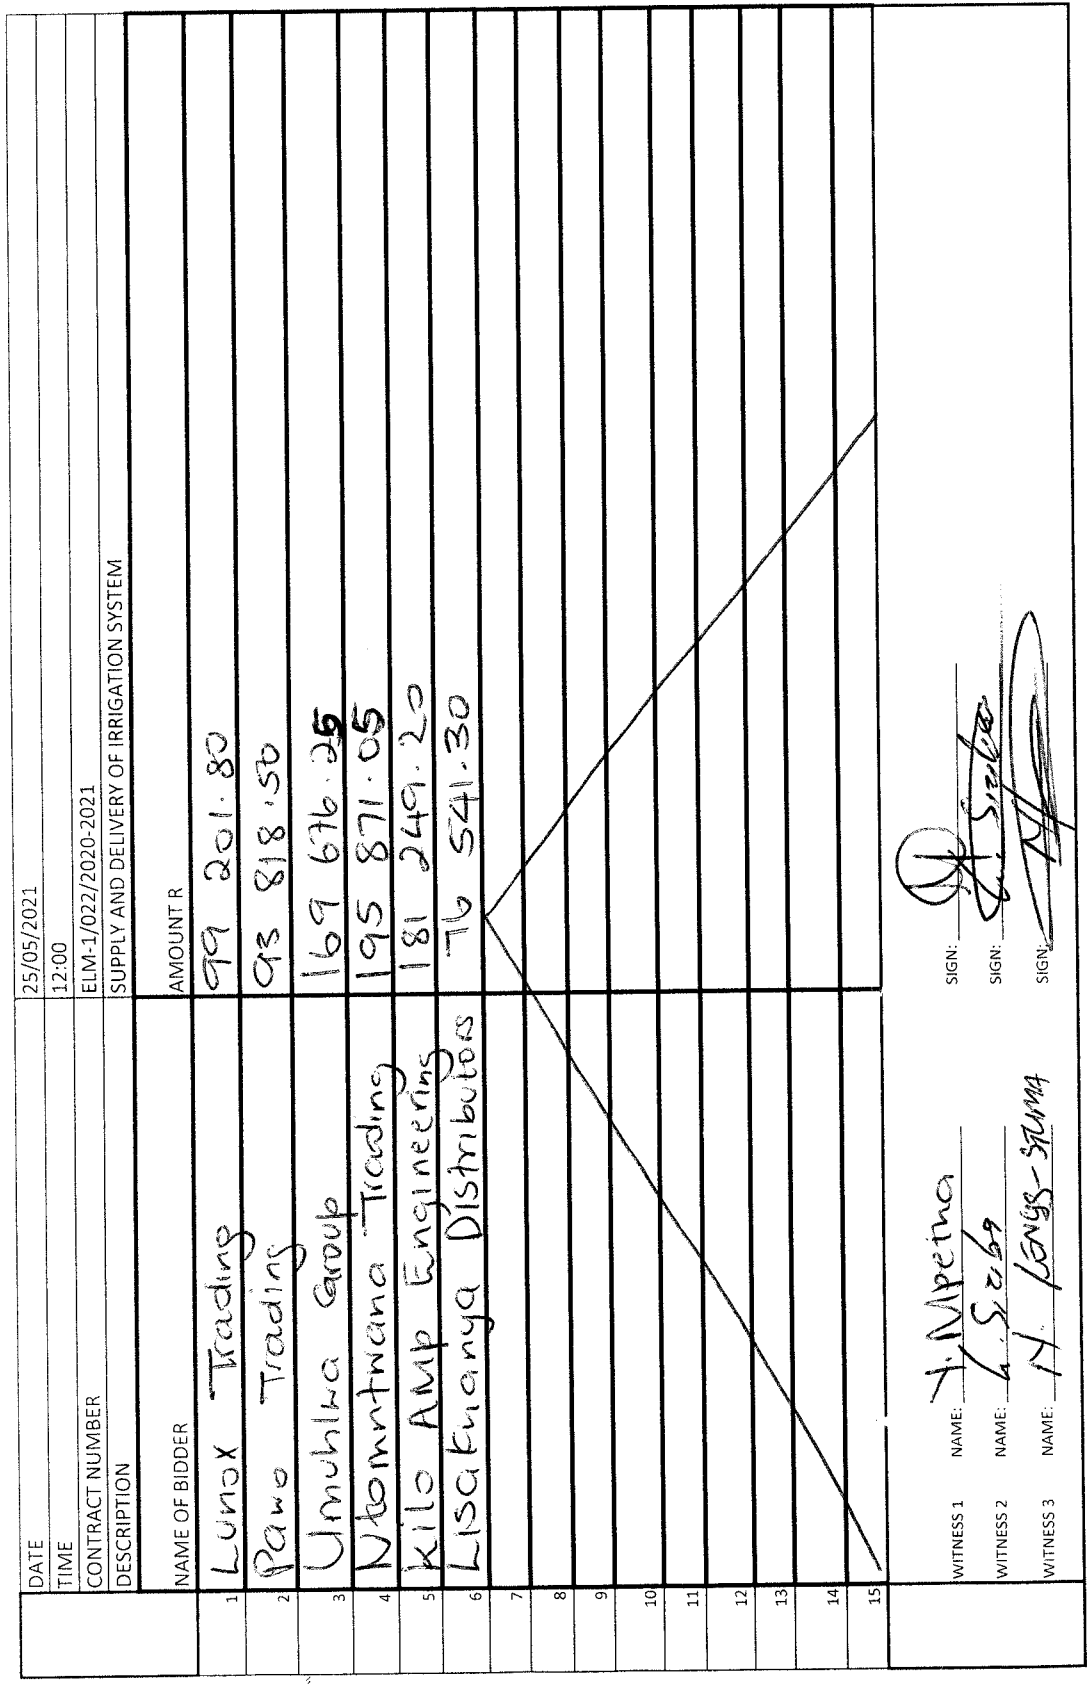 DATE 25/05/2021
TIME 12:00
CONTRACT NUMBER ELM-1/022/2020-2021
DESCRIPTION SUPPLY AND DELIVERY OF IRRIGATION SYSTEM
NAME OF BIDDER AMOUNT R
1 Lunox Trading 99 201.80
2 Pawo Trading 93 818.50
3 Umuhlwa Group 169 676.25
4 Ntomntwana Trading 195 871.05
5 Kilo AMP Engineering 181 249.20
6 Lisakhanya Distributors 76 541.30
7
8
9
10
11
12
13
14
15
WITNESS 1 NAME: Y. Mpetha SIGN:
WITNESS 2 NAME: SIGN:
WITNESS 3 NAME: N. SIGN: